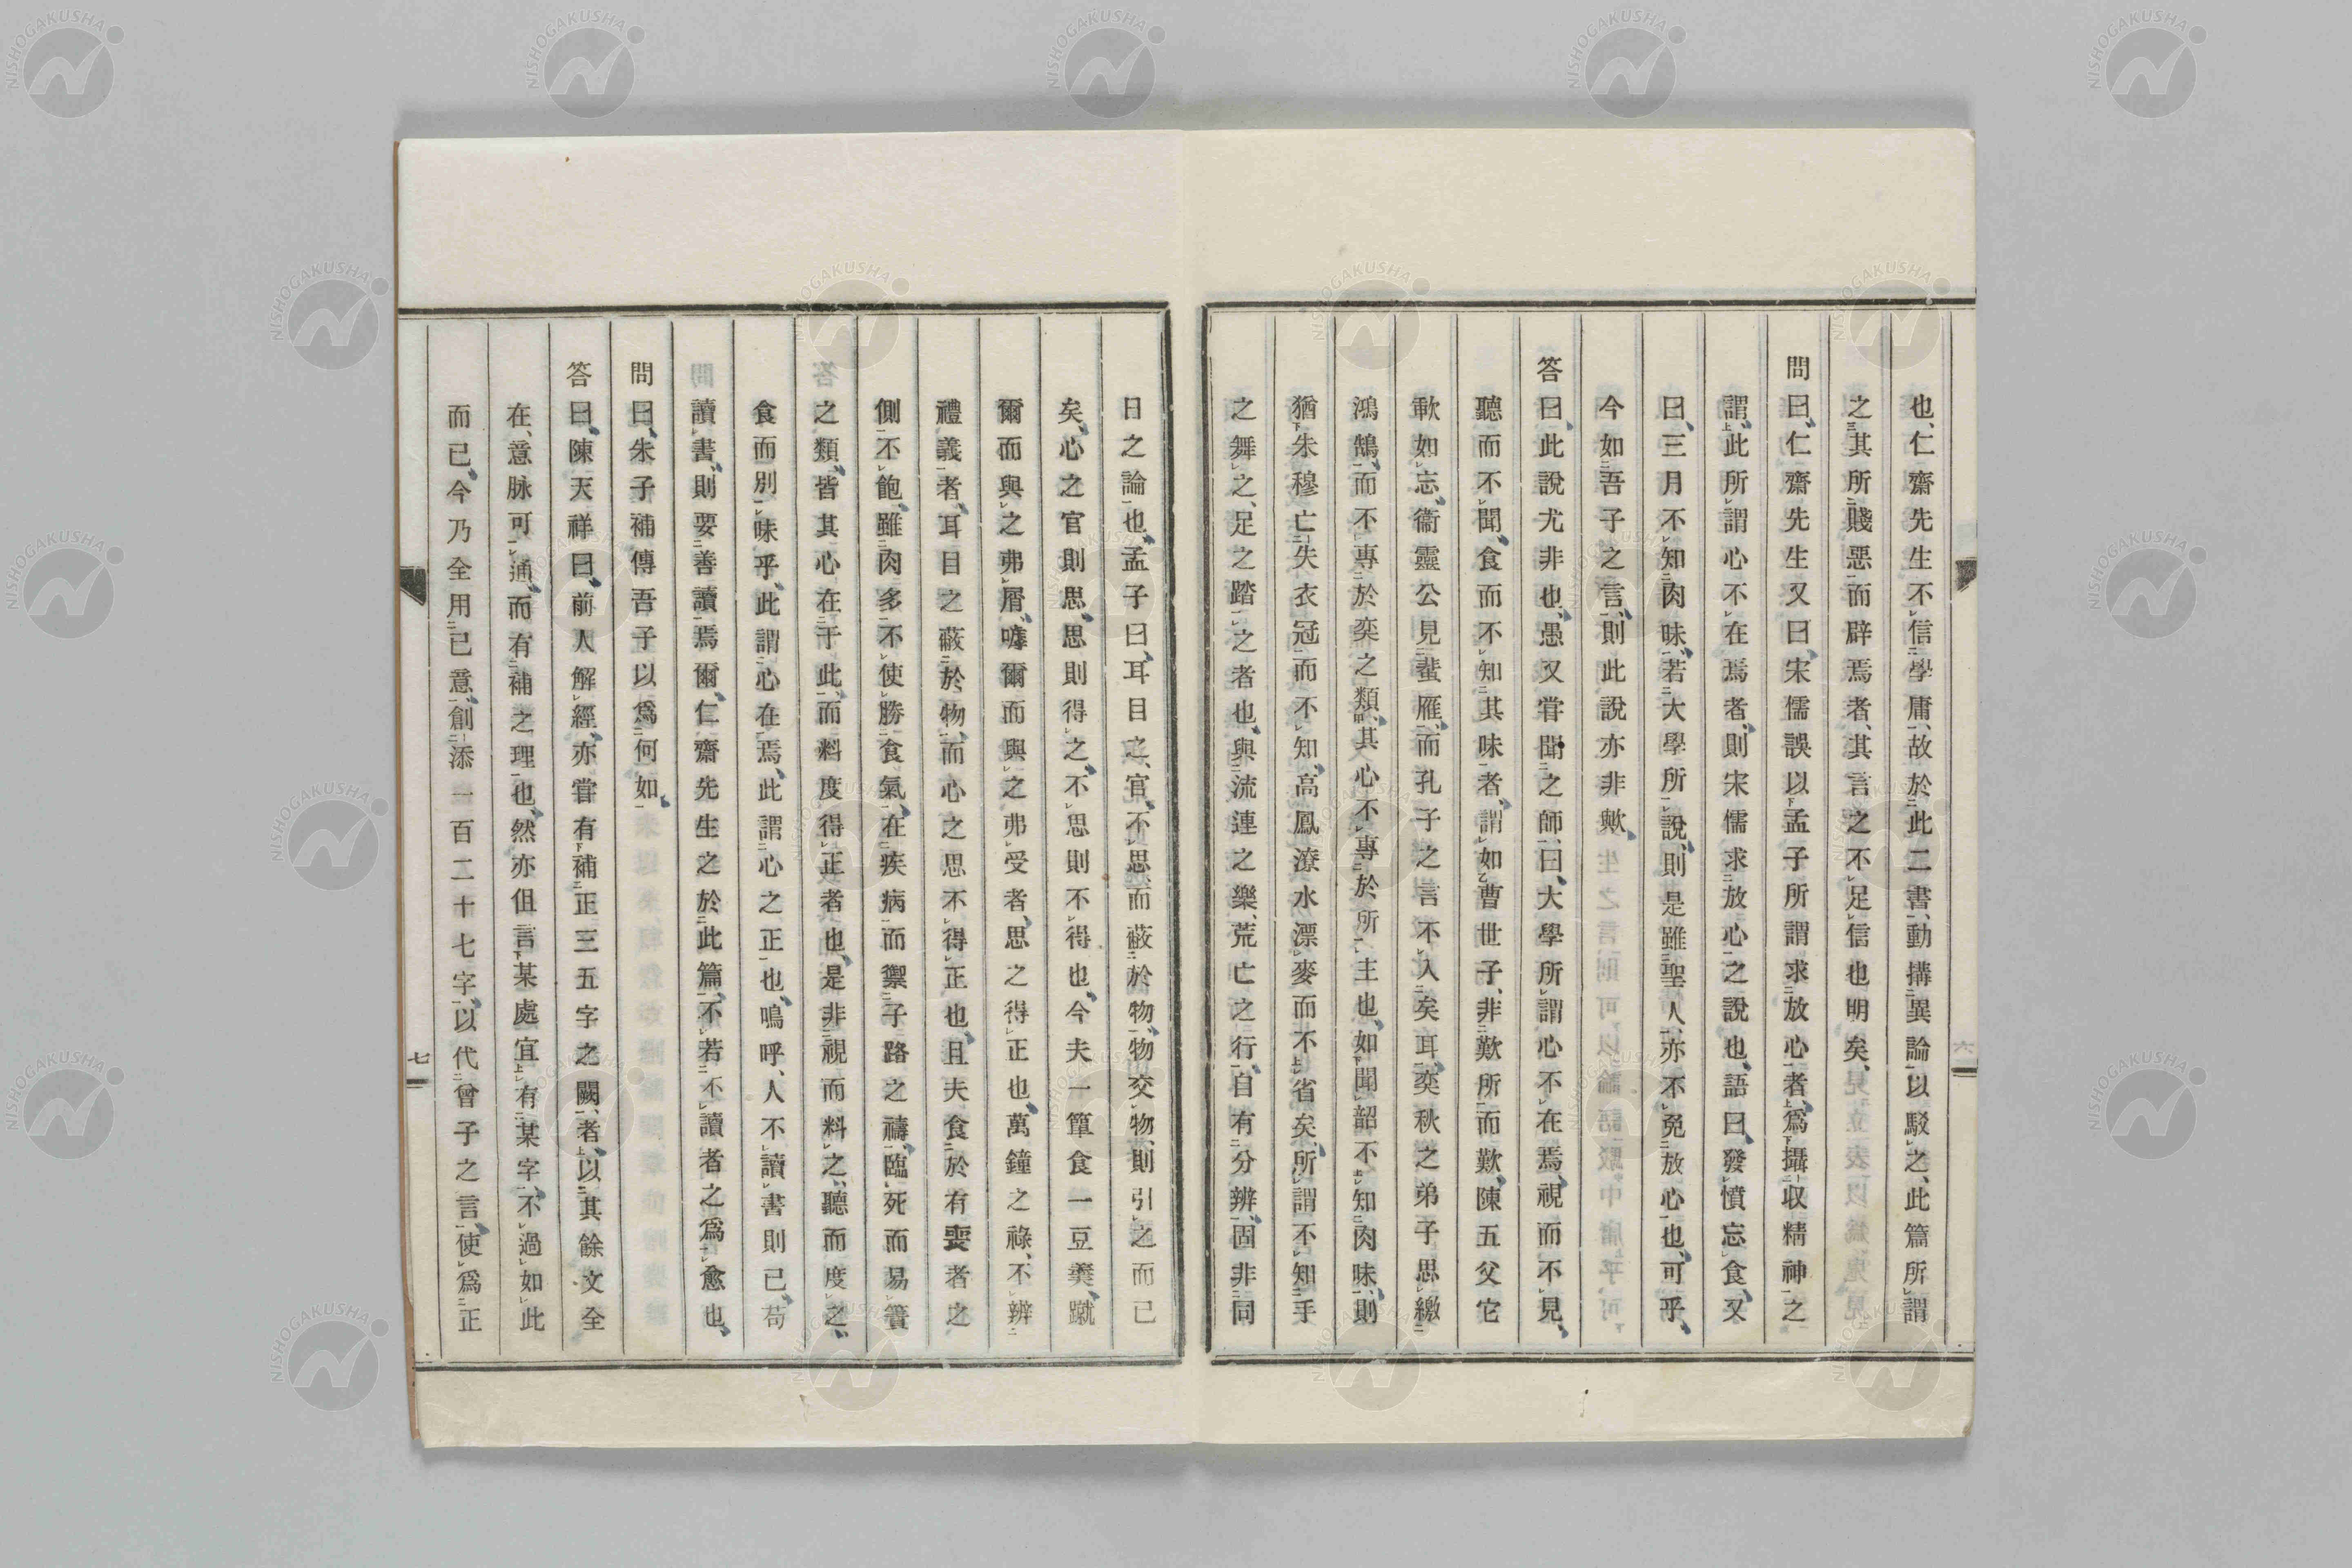 也、仁齋先生不信學庸、故於此二書、動搆異論以駁之、此篇所謂
之其所賤惡而辟焉者、其言之不足信也明矣、
問曰、仁齋先生又曰、宋儒誤以孟子所謂求放心者、爲攝収精神之
謂、此所謂心不在焉者、則宋儒求放心之說也、語曰、發憤忘食、又
曰、三月不知肉味、若大學所說、則是雖聖人、亦不免放心也、可乎、
今如吾子之言、則此說亦非歟、
答曰、此說尤非也、愚又甞聞之師、曰、大學所謂心不在焉、視而不見、
聽而不聞、食而不知其味者、謂如曹世子、非歎所而歎、陳五父它
歃如忘、衞靈公見蜚雁、而孔子之言不入矣耳、奕秋之弟子思繳
鴻鵠、而不專於奕之類、其心不專於所主也、如聞韶不知肉味、則
猶朱穆亡失衣冠而不知、高鳳潦水漂麥而不省矣、所謂不知手
之舞之、足之踏之者也、與流連之樂、荒亡之行、自有分辨、固非同
日之論也、孟子曰、耳目之官、不思而蔽於物、物交物、則引之而已
矣、心之官則思、思則得之、不思則不得也、今夫一簞食一豆羹、蹴
爾而與之弗屑、嘑爾而與之弗受者、思之得正也、萬鐘之祿、不辨
禮義者、耳目之蔽於物、而心之思不得正也、且夫食於有喪者之
側不飽、雖肉多不使勝食氣、在疾病而禦子路之禱、臨死而易簀
之類、皆其心在于此、而料度得正者也、是非視而料之、聽而度之、
食而別味乎、此謂心在焉、此謂心之正也、鳴呼、人不讀書則已、苟
讀書、則要善讀焉爾、仁齋先生之於此篇、不若不讀者之爲愈也、
問曰、朱子補傳吾子以爲何如、
答曰、陳天祥曰、前人解經、亦甞有補正三五字之闕者、以其餘文全
在、意脉可通、而有補之理也、然亦但言某處宜有某字、不過如此
而已、今乃全用己意、創添一百二十七字、以代曾子之言、使爲正
七
六
NISHOGAKUSHA